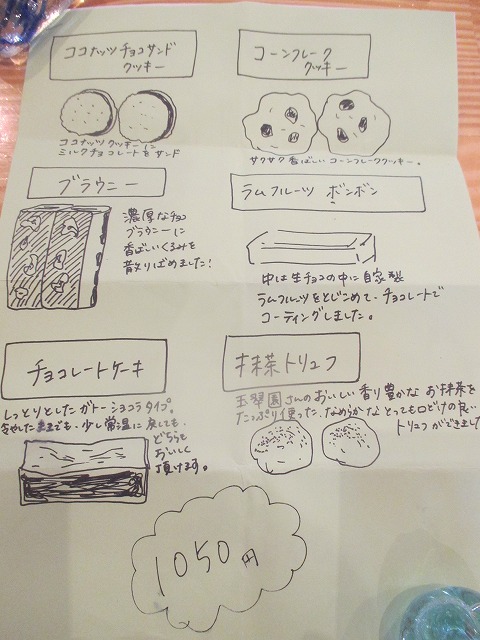 ココナッツチョコサンド
クッキー
ココナッツクッキーに
ミルクチョコレートをサンド
コーンフレーク
クッキー
サクサク香ばしいコーンフレーククッキー。
ブラウニー
濃厚なチョコ
ブラウニーに
香ばしいくるみを
散りばめました!
ラムフルーツ ボンボン
中は生チョコの中に自家製
ラムフルーツをとじこめて、チョコレートで
コーティングしました。
チョコレートケーキ
しっとりとしたガトーショコラタイプ。
冷やしたままでも、少し常温に戻しても、
どちらも
おいしく
頂けます。
抹茶トリュフ
玉翠園さんのおいしい香り豊かなお抹茶を
たっぷり使った、なめらかなとっても口どけの良い
トリュフができました
1050円